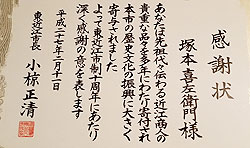 感謝状
塚本喜左衛門様
あなたは先祖代々伝わる近江商人の
貴重な品々を多年にわたり寄付され
本市の歴史文化の振興に大きく
寄与されました
よって東近江市制十周年にあたり
深く感謝の意を表します
平成二十七年二月十一日
東近江市長 小椋正清